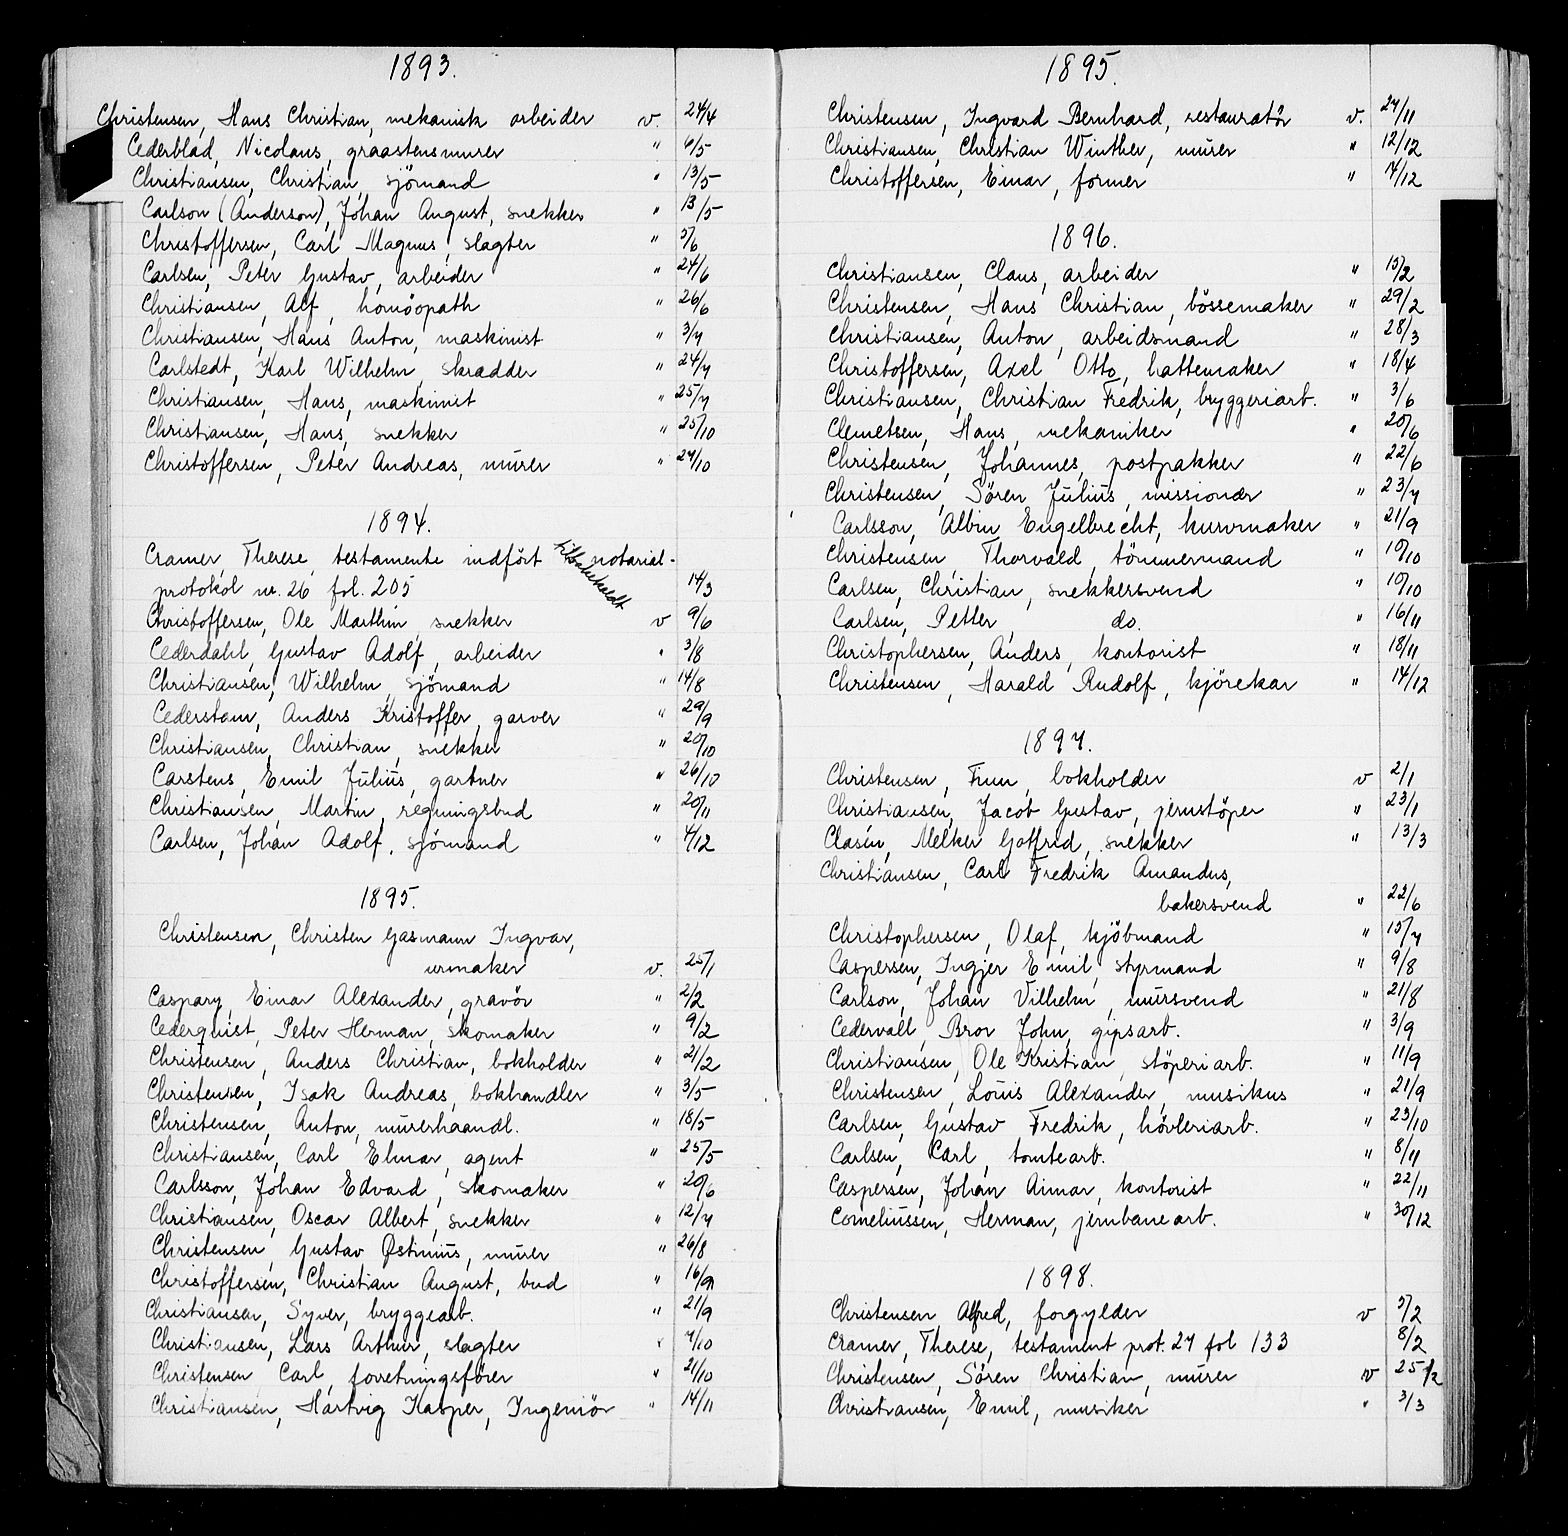 1893.
Christensen, Hans Christian, mekanisk arbeider v. 24/4
Cederblad, Nicolaus, graastensmurer " 6/5
Christiansen, Christian, sjömand " 13/5
Carlson (Anderson), Johan August, snekker " 13/5
Christoffersen, Carl Magnus, slagter " 5/6
Carlsen, Peter Gustav, arbeider " 24/6
Christiansen, Alf, homöopath " 26/6
Christiansen, Hans Anton, maskinist " 3/7
Carlstedt, Karl Wilhelm, skrædder " 24/7
Christiansen, Hans, maskinist " 25/7
Christiansen, Hans, snekker " 25/10
Christoffersen, Peter Andreas, murer " 27/10
1894.
Cramer, Therese, testamente indfört notarial-
tilbakekaldt
protokol nr. 26 fol. 205 14/3
Christoffersen, Ole Marthin snekker v 9/6
Cederdahl, Gustav Adolf, arbeider " 3/8
Christiansen, Wilhelm, sjömand " 14/8
Cederstam, Anders Kristoffer, garver " 29/9
Christiansen, Christian, snekker " 20/10
Carstens, Emil Julius, gartner " 26/10
Christiansen, Martin, regningsbud " 20/11
Carlsen, Johan Adolf, sjömand " 4/12
1895.
Christensen, Christen Gasmann Ingvar,
urmaker v. 25/1
Caspary, Einar Alexander, gravör " 2/2
Cederquist, Peter Herman, skomaker " 9/2
Christensen, Anders Christian, bokholder " 21/2
Christensen, Isak Andreas, bokhandler " 3/5
Christensen, Anton, murerhaandl. " 18/5
Christiansen, Carl Elmar, agent " 25/5
Carlsson, Johan Edvard, skomaker " 20/6
Christiansen, Oscar Albert, snekker " 12/7
Christensen, Gustav Østinius, murer " 26/8
Christoffersen, Christian August, bud " 16/9
Christiansen, Syver, bryggearb. " 21/9
Christiansen, Lars Arthur, slagter " 7/10
Christensen, Carl, forretningsfører " 21/10
Christiansen, Hartvig Kasper, Ingeniör " 14/11
1895.
Christensen, Ingvard Bernhard, restauratör v. 27/11
Christiansen, Christian Winther, murer " 12/12
Christoffersen, Einar, former " 14/12
1896.
Christiansen, Claus, arbeider " 15/2
Christensen, Hans Christian, bössemaker " 29/2
Christiansen, Anton, arbeidsmand " 28/3
Christoffersen, Axel Otto, hattemaker " 18/4
Christiansen, Christian Fredrik, bryggeriarb. " 3/6
Clemetsen, Hans, mekaniker " 20/6
Christensen, Johannes, postpakker " 22/6
Christensen, Sören Julius, missionær " 23/7
Carlsson, Albin Engelbrecht, kurvmaker " 21/9
Christensen, Thorvald, tömmermand " 10/10
Carlsen, Christian, snekkersvend " 10/10
Carlsen, Petter, do. " 16/11
Christophersen, Anders, kontorist " 18/11
Christensen, Harald Rudolf, kjörekar " 14/12
1897.
Christensen, Finn, bokholder v 2/1
Christiansen, Jacob Gustav, jernstöper " 23/1
Clasén, Melker Gotfrid, snekker " 13/3
Christiansen, Carl Fredrik Amandus,
bakersvend " 22/6
Christophersen, Olaf, kjöbmand " 15/7
Caspersen, Ingjer Emil, styrmand " 9/8
Carlson, Johan Vilhelm, mursvend " 21/8
Cedervall, Bror John, gipsarb. " 3/9
Christiansen, Ole Kristian, stöperiarb. " 11/9
Christensen, Louis Alexander, musikus " 21/9
Carlsen, Gustav Fredrik, hövleriarb. " 23/10
Carlsen, Carl, tomtearb. " 8/11
Caspersen, Johan Aimar, kontorist " 22/11
Corneliussen, Herman, jernbanearb. " 30/12
1898.
Christensen Alfred, forgylder v 5/2
Cramer, Therese, testament prot. 27 fol 133 8/2
Christensen, Sören Christian, murer v 25/2
Christiansen, Emil, musiker " 3/3